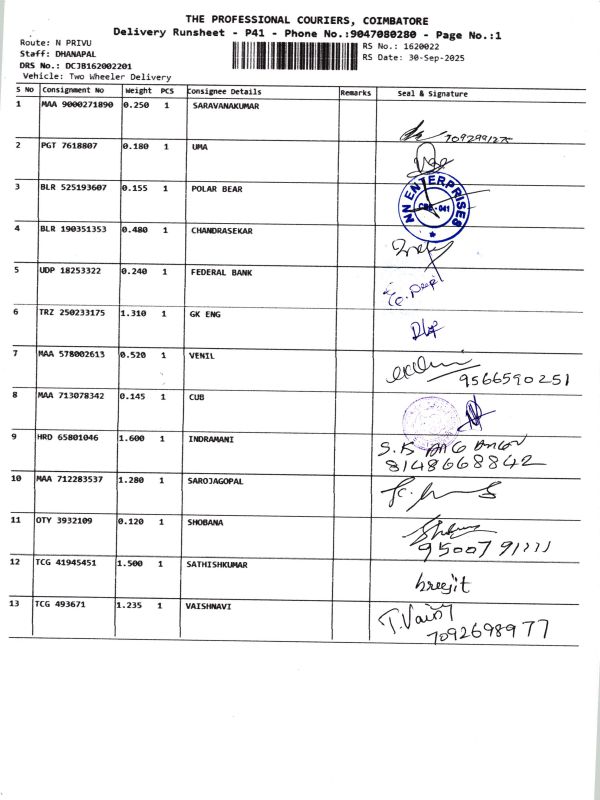 THE PROFESSIONAL COURIERS, COIMBATORE
Delivery Runsheet - P41 - Phone No.:9047080280 - Page No.:1
Route: N PRIVU
Staff: DHANAPAL
DRS No.: DCJB162002201
Vehicle: Two Wheeler Delivery
RS No.: 1620022
RS Date: 30-Sep-2025
S No Consignment No Weight PCS Consignee Details Remarks Seal & Signature
1 MAA 9000271890 0.250 1 SARAVANAKUMAR
7092991275
2 PGT 7618807 0.180 1 UMA
3 BLR 525193607 0.155 1 POLAR BEAR
NN ENTERPRISES
CBE-041
4 BLR 190351353 0.480 1 CHANDRASEKAR
5 UDP 18253322 0.240 1 FEDERAL BANK
6 TRZ 250233175 1.310 1 GK ENG
7 MAA 578002613 0.520 1 VENIL
9566590251
8 MAA 713078342 0.145 1 CUB
9 HRD 65801046 1.600 1 INDRAMANI
8148668842
10 MAA 712283537 1.280 1 SAROJAGOPAL
11 OTY 3932109 0.120 1 SHOBANA
9500791111
12 TCG 41945451 1.500 1 SATHISHKUMAR
13 TCG 493671 1.235 1 VAISHNAVI
T.Vais
7092698977